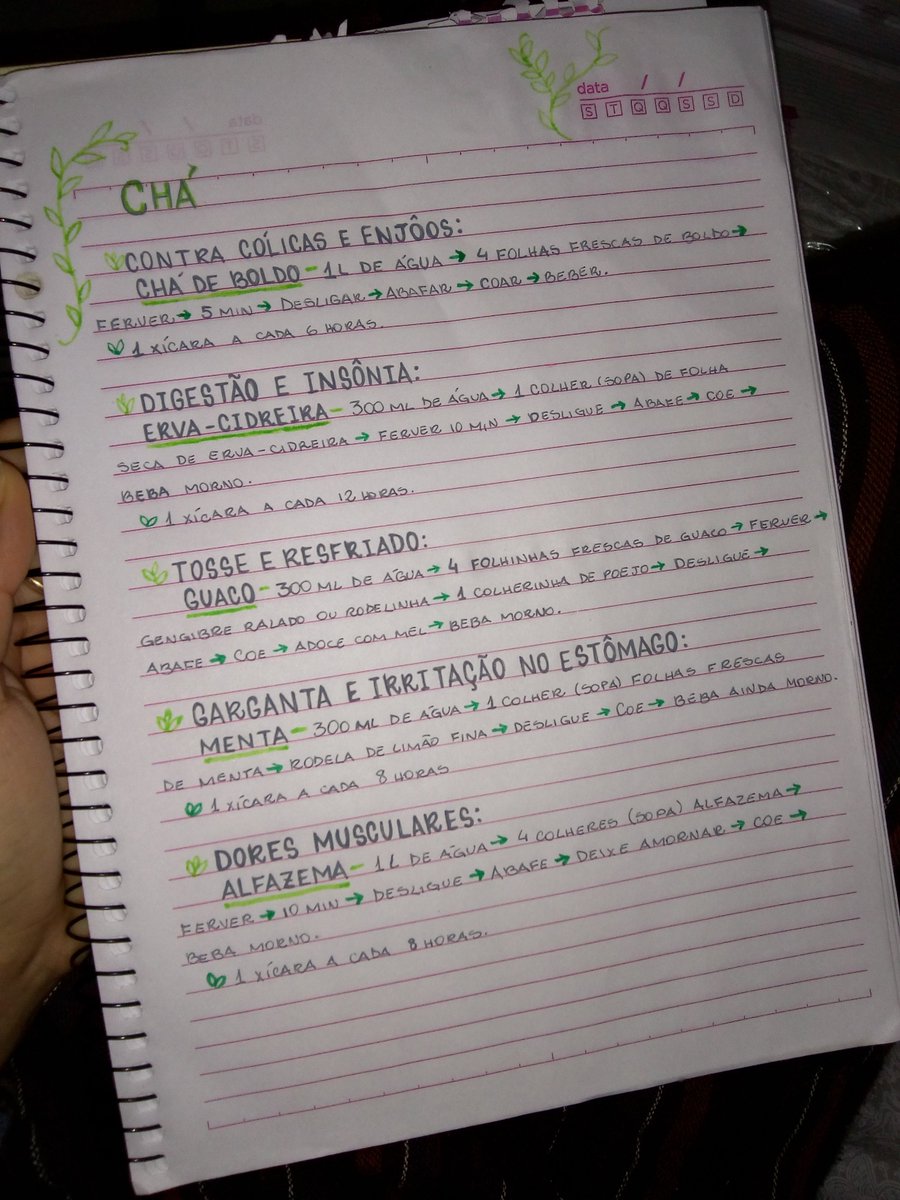 data / /
S T Q Q S S D
CHÁ
CONTRA CÓLICAS E ENJÔOS:
CHÁ DE BOLDO - 1L DE ÁGUA → 4 FOLHAS FRESCAS DE BOLDO →
FERVER → 5 MIN → DESLIGAR → ABAFAR → COAR → BEBER.
1 XÍCARA A CADA 6 HORAS.
DIGESTÃO E INSÔNIA:
ERVA-CIDREIRA - 300 ML DE ÁGUA → 1 COLHER (SOPA) DE FOLHA
SECA DE ERVA-CIDREIRA → FERVER 10 MIN → DESLIGUE → ABAFE → COE →
BEBA MORNO.
1 XÍCARA A CADA 12 HORAS.
TOSSE E RESFRIADO:
GUACO - 300 ML DE ÁGUA → 4 FOLHINHAS FRESCAS DE GUACO → FERVER →
GENGIBRE RALADO OU RODELINHA → 1 COLHERINHA DE POEJO → DESLIGUE →
ABAFE → COE → ADOCE COM MEL → BEBA MORNO.
GARGANTA E IRRITAÇÃO NO ESTÔMAGO:
MENTA - 300 ML DE ÁGUA → 1 COLHER (SOPA) FOLHAS FRESCAS
DE MENTA → RODELA DE LIMÃO FINA → DESLIGUE → COE → BEBA AINDA MORNO.
1 XÍCARA A CADA 8 HORAS
DORES MUSCULARES:
ALFAZEMA - 1L DE ÁGUA → 4 COLHERES (SOPA) ALFAZEMA →
FERVER → 10 MIN → DESLIGUE → ABAFE → DEIXE AMORNAR → COE →
BEBA MORNO.
1 XÍCARA A CADA 8 HORAS.